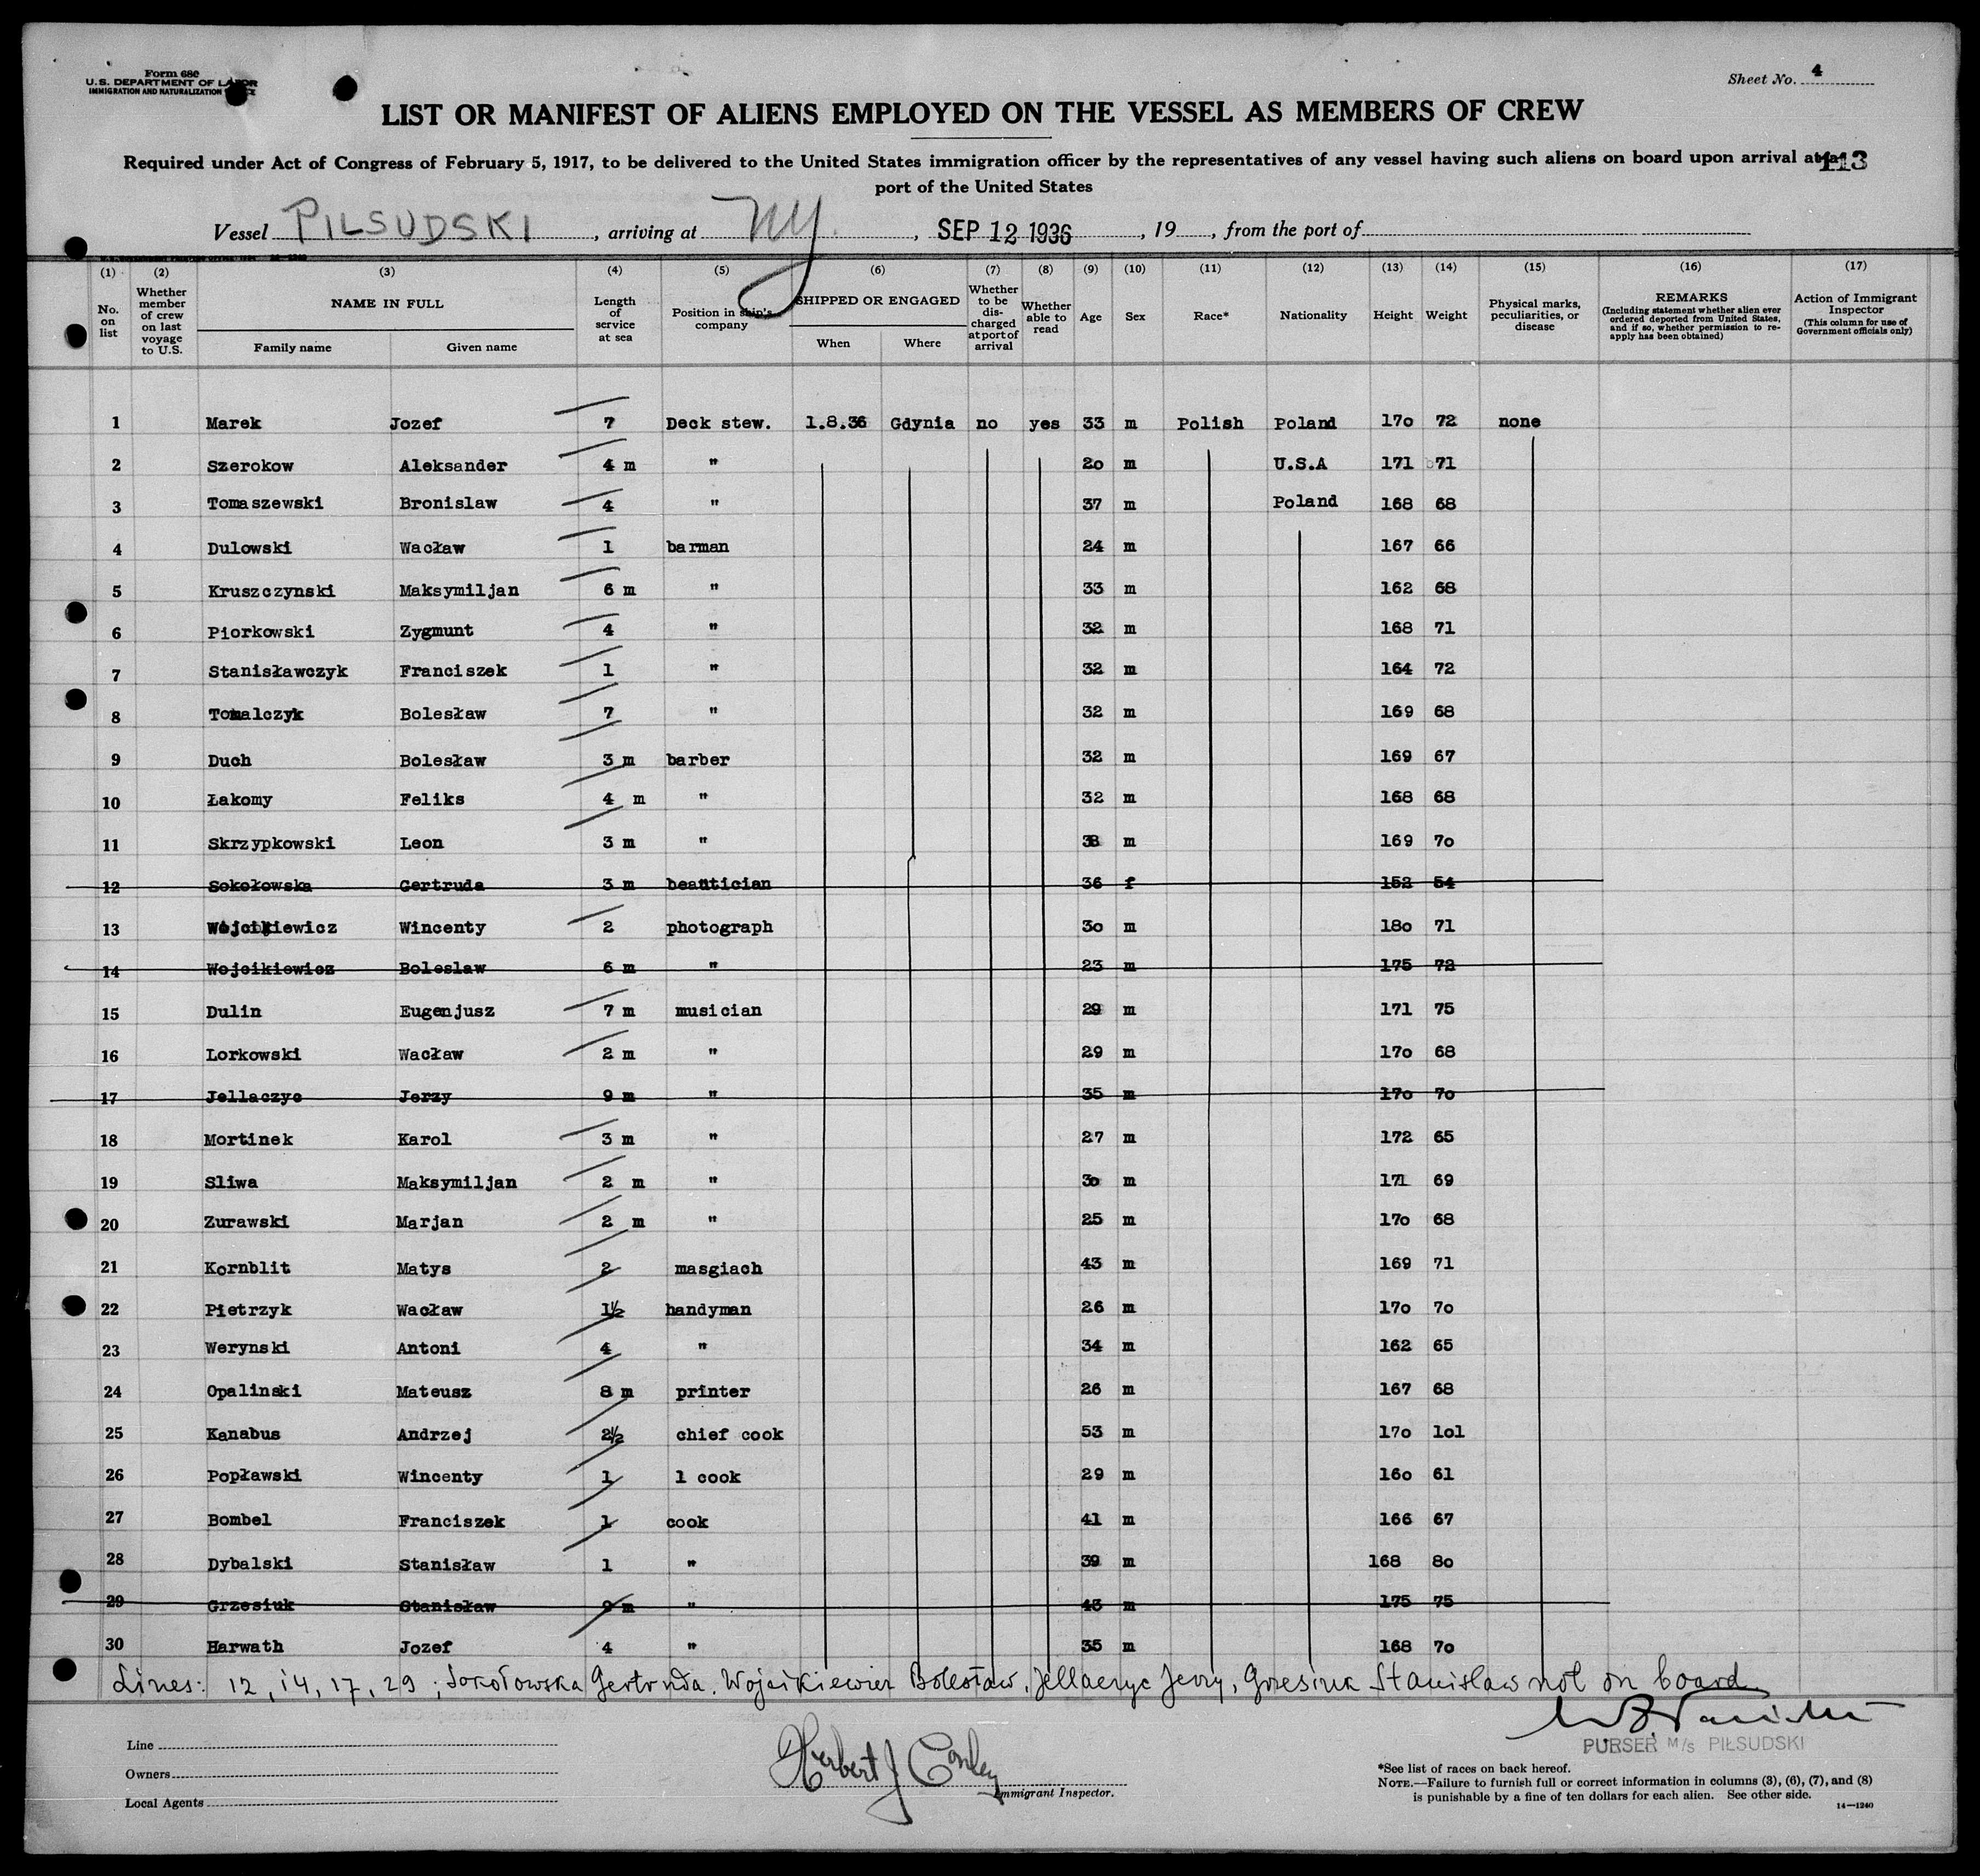 Form 680
U.S. DEPARTMENT OF LABOR
IMMIGRATION AND NATURALIZATION
Sheet No. 4
LIST OR MANIFEST OF ALIENS EMPLOYED ON THE VESSEL AS MEMBERS OF CREW
Required under Act of Congress of February 5, 1917, to be delivered to the United States immigration officer by the representatives of any vessel having such aliens on board upon arrival at a
113
port of the United States
Vessel PILSUDSKI , arriving at NY. , SEP 12 1936 , 19 , from the port of
(1) (2) (3) (4) (5) (6) (7) (8) (9) (10) (11) (12) (13) (14) (15) (16) (17)
No. on list
Whether member of crew on last voyage to U.S.
NAME IN FULL
Family name Given name
Length of service at sea
Position in ship's company
SHIPPED OR ENGAGED
When Where
Whether to be discharged at port of arrival
Whether able to read
Age Sex Race* Nationality Height Weight
Physical marks, peculiarities, or disease
REMARKS
(Including statement whether alien ever ordered deported from United States, and if so, whether permission to re-apply has been obtained)
Action of Immigrant Inspector
(This column for use of Government officials only)
1 Marek Jozef 7 Deck stew. 1.8.36 Gdynia no yes 33 m Polish Poland 170 72 none
2 Szerokow Aleksander 4 m " 20 m U.S.A 171 71
3 Tomaszewski Bronislaw 4 " 37 m Poland 168 68
4 Dulowski Wacław 1 barman 24 m 167 66
5 Kruszczynski Maksymiljan 6 m " 33 m 162 68
6 Piorkowski Zygmunt 4 " 32 m 168 71
7 Stanisławczyk Franciszek 1 " 32 m 164 72
8 Tomalczyk Bolesław 7 " 32 m 169 68
9 Duch Bolesław 3 m barber 32 m 169 67
10 Łakomy Feliks 4 m " 32 m 168 68
11 Skrzypkowski Leon 3 m " 38 m 169 70
12 Sokołowska Gertruda 3 m beautician 36 f 152 54
13 Wojcikiewicz Wincenty 2 photograph 30 m 180 71
14 Wojcikiewicz Boleslaw 6 m " 23 m 175 72
15 Dulin Eugenjusz 7 m musician 29 m 171 75
16 Lorkowski Wacław 2 m " 29 m 170 68
17 Jellaczyc Jerzy 9 m " 35 m 170 70
18 Mortinek Karol 3 m " 27 m 172 65
19 Sliwa Maksymiljan 2 m " 30 m 171 69
20 Zurawski Marjan 2 m " 25 m 170 68
21 Kornblit Matys 2 masgiach 43 m 169 71
22 Pietrzyk Wacław 1½ handyman 26 m 170 70
23 Werynski Antoni 4 " 34 m 162 65
24 Opalinski Mateusz 8 m printer 26 m 167 68
25 Kanabus Andrzej 2½ chief cook 53 m 170 101
26 Popławski Wincenty 1 1 cook 29 m 160 61
27 Bombel Franciszek 1 cook 41 m 166 67
28 Dybalski Stanisław 1 " 39 m 168 80
29 Grzesiuk Stanisław 9 m " 43 m 175 75
30 Harwath Jozef 4 " 35 m 168 70
Lines: 12, 14, 17, 29; Sokołowska Gertruda. Wojcikiewicz Bolesław, Jellaczyc Jerzy, Grzesiuk Stanislaw not on board
PURSER M/S PIŁSUDSKI
Line
Owners
Local Agents
Herbert J Conley
Immigrant Inspector.
*See list of races on back hereof.
NOTE.—Failure to furnish full or correct information in columns (3), (6), (7), and (8)
is punishable by a fine of ten dollars for each alien. See other side.
14—1240